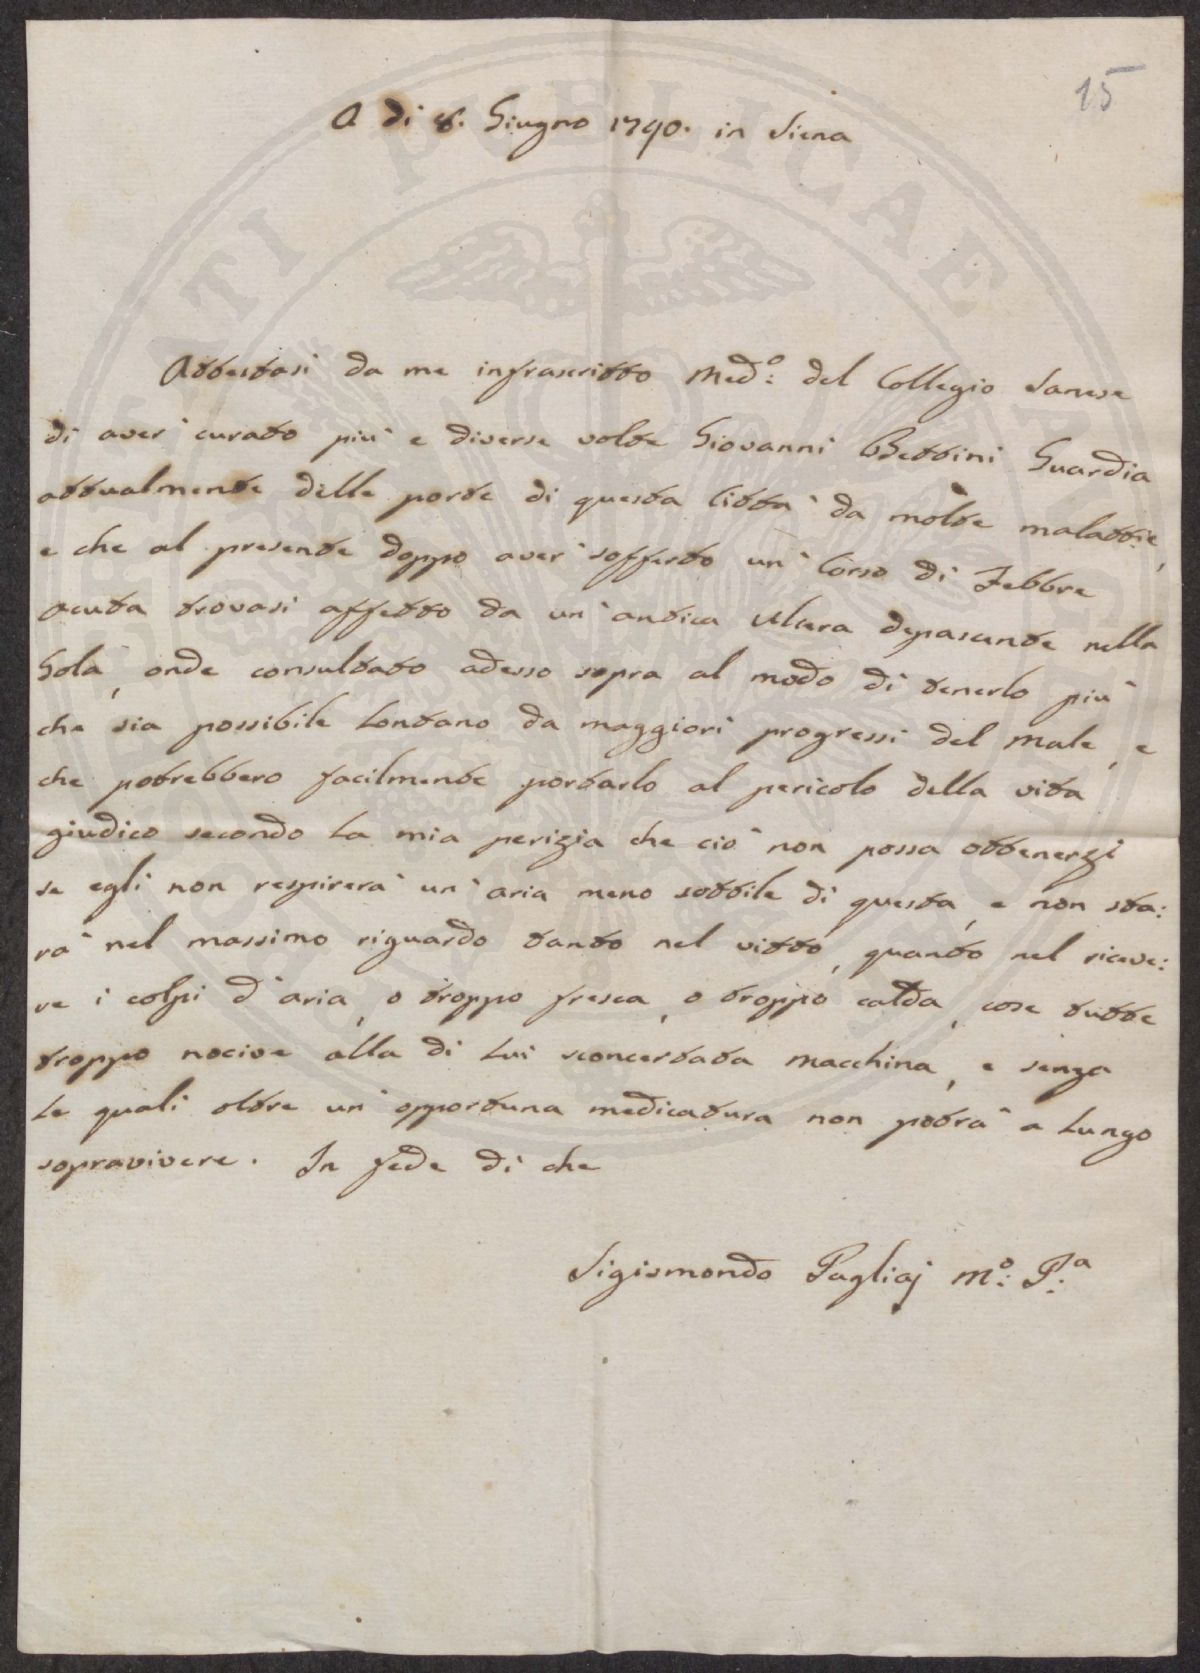 15
A di 8. Giugno 1790. in Siena
Attestasi da me infrascritto Med:º del Collegio Sanese
di aver' curato più e diverse volte Giovanni Bettini Guardia
attualmente delle porte di questa Città da molte malattie,
e che al presente doppo aver' sofferto un' Corso di Febbre
acuta trovasi affetto da un' antica Ulcera depascente nella
Gola, onde consultato adesso sopra al modo di tenerlo più
che sia possibile Lontano da maggiori progressi del Male, e
che potrebbero facilmente portarlo al pericolo della vita
giudico secondo La mia perizia che ciò non possa ottenerzi
se egli non respirerà un' aria meno sottile di questa, e non sta:
rà nel massimo riguardo tanto nel vitto, quanto nel riceve:
re i colpi d'aria, o troppo fresca, o troppo calda, cose tutte
troppo nocive alla di Lui sconcertata macchina, e senza
Le quali oltre un' opportuna medicatura non potrà a Lungo
sopravivere. In fede di che
Sigismondo Pagliaj M:º P:ª